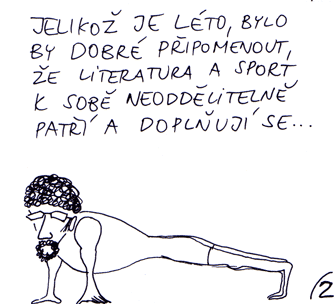 JELIKOŽ JE LÉTO, BYLO
BY DOBRÉ PŘIPOMENOUT,
ŽE LITERATURA A SPORT
K SOBĚ NEODDĚLITELNĚ
PATŘÍ A DOPLŇUJÍ SE...
(2